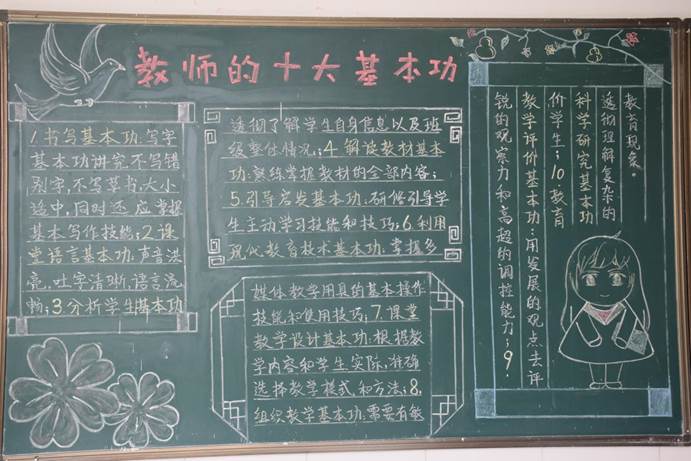 教师的十大基本功
1.书写基本功:写字
基本功讲究不写错
别字,不写草书,大小
适中,同时还应掌握
基本写作技能;2.课
堂语言基本功:声音洪
亮,吐字清晰,语言流
畅;3.分析学生基本功
透彻了解学生自身信息以及班
级整体情况;4.解读教材基本
功:熟练掌握教材的全部内容;
5.引导启发基本功:研修引导学
生主动学习技能和技巧;6.利用
现代教育技术基本功:掌握多
媒体教学用具的基本操作
技能和使用技巧;7.课堂
教学设计基本功:根据教
学内容和学生实际,准确
选择教学模式和方法;8.
组织教学基本功:需要有敏
锐的观察力和高超的调控能力;9.
教学评价基本功:用发展的观点去评
价学生;10.教育
科学研究基本功
透彻理解复杂的
教育现象。